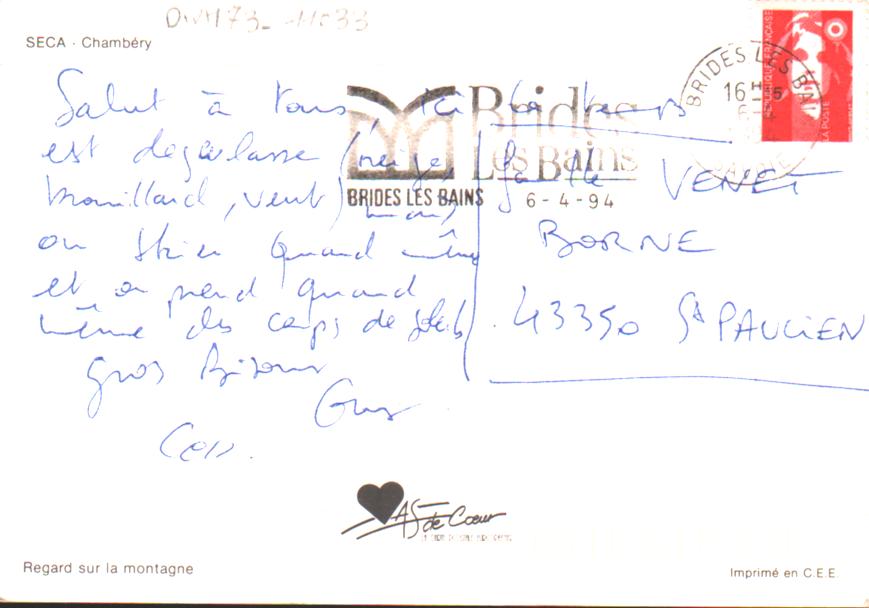 DWM73-11033
SECA - Chambéry
Salut à tous ici le temps
est degeulasse (neige,
brouillard, vent) mais
on skie quand même
et on prend quand
même des coups de soleils
gros Bisous
Guy
Brides
Les Bains
BRIDES LES BAINS
6-4-94
BRIDES LES BAINS
16 H
SAVOIE
RÉPUBLIQUE FRANÇAISE
LA POSTE
Famille VENET
BORNE
43350 St PAULIEN
AS de Cœur
Regard sur la montagne
Imprimé en C.E.E.